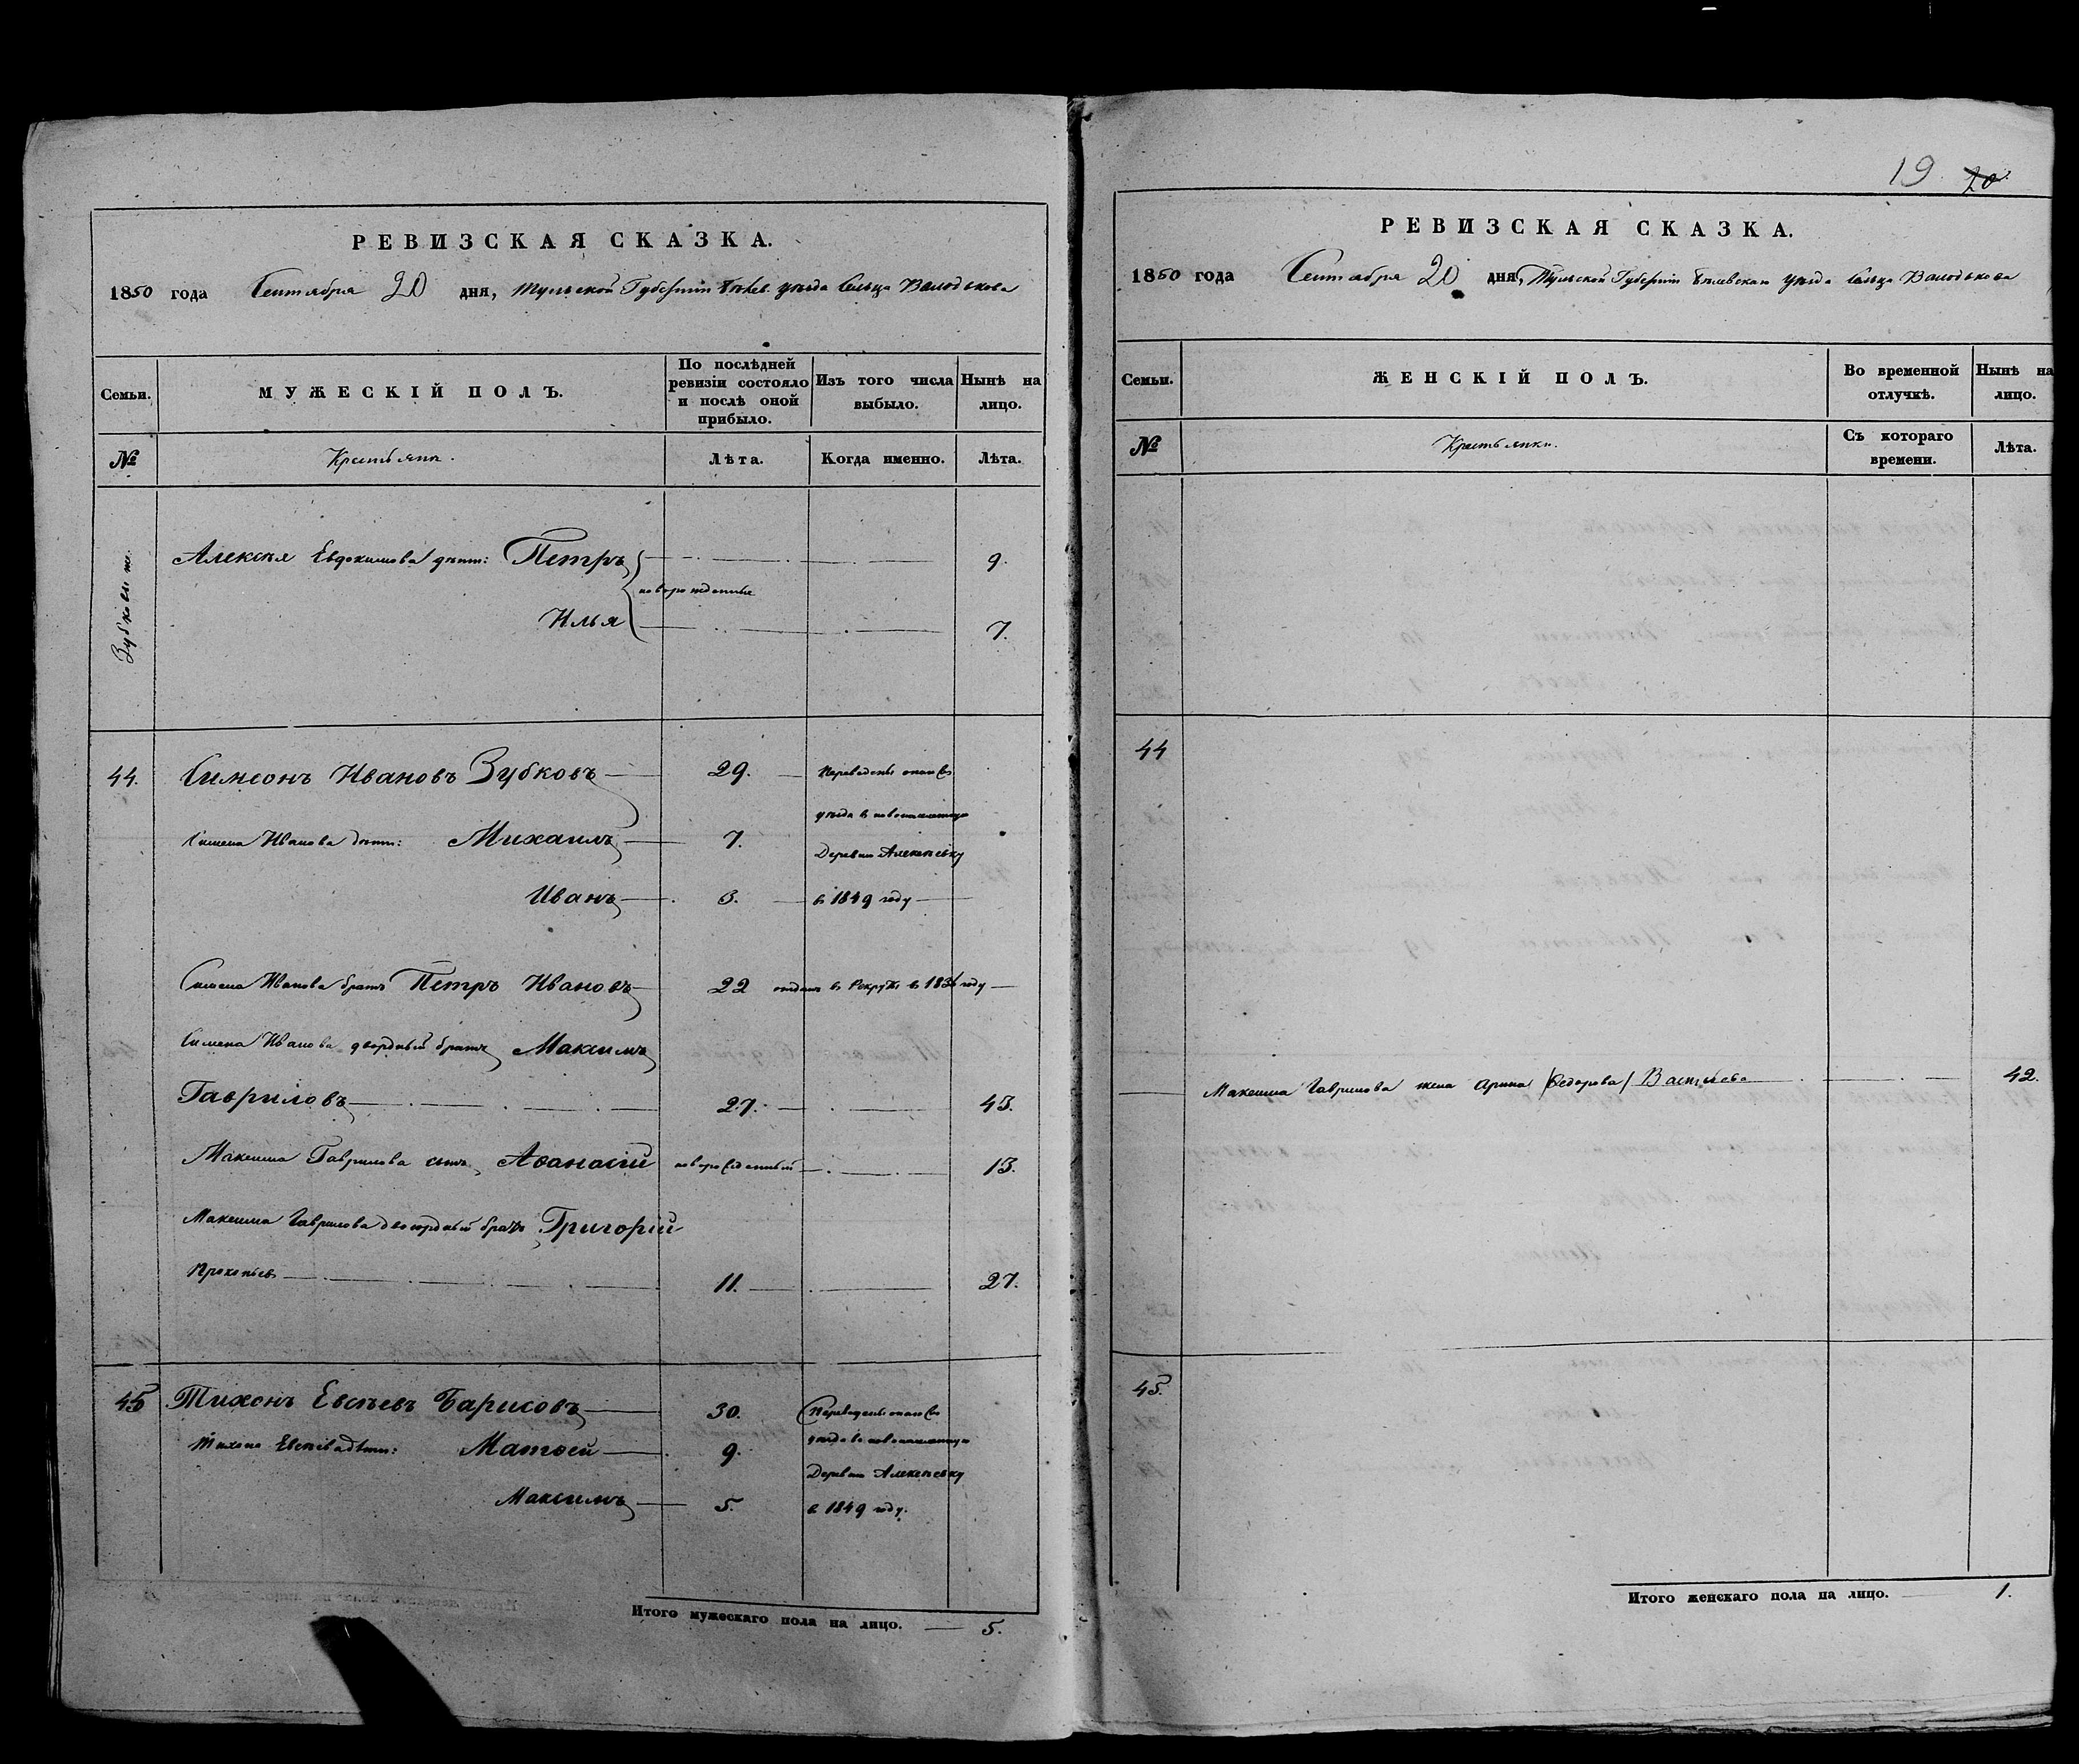 РЕВИЗСКАЯ СКАЗКА.
1850 года Сентября 20 дня, Тульской Губернiи Бѣлев. уѣзда Сельца Володькова
Семьи. МУЖЕСКІЙ ПОЛЪ. По послѣдней ревизіи состояло и послѣ оной прибыло. Изъ того числа выбыло. Нынѣ на лицо.
№ Крестьяне. Лѣта. Когда именно. Лѣта.
Зубковы
Алексѣя Евдокимова дѣти: Петръ 9.
новорожденные
Илья 7.
44. Симеонъ Ивановъ Зубковъ 29. Переведены
уѣзда в
Симена Иванова дѣти: Михаилъ 7. Деревню Алексеевку
Иванъ 3. в 1849 году
Симена Иванова братъ Петръ Ивановъ 22 отданъ в Рекруты в 1836 году
Симена Иванова двоюрдный братъ Максимъ
Гавриловъ 27. 43.
Максима Гаврилова сынъ Аѳанасій новорожденный 13.
Максима Гаврилова двоюрдный братъ Григорій
Прокопьев 11. 27.
45 Тихонъ Евсѣевъ Барисовъ 30. Переведены
Тихона Евсѣева дѣти: Матѳей 9. уѣзда в
Деревню Алексеевку
Максимъ 5. в 1849 году.
Итого мужескаго пола на лицо. 5.
19 20
РЕВИЗСКАЯ СКАЗКА.
1850 года Сентября 20 дня, Тульской Губернiи Бѣлевскаго уѣзда Сельца Володькова
Семьи. ЖЕНСКІЙ ПОЛЪ. Во временной отлучкѣ. Нынѣ на лицо.
№ Крестьянки. Съ котораго времени. Лѣта.
44
Максима Гаврилова жена Арина /Федорова/ Васильева 42.
45.
Итого женскаго пола на лицо. 1.